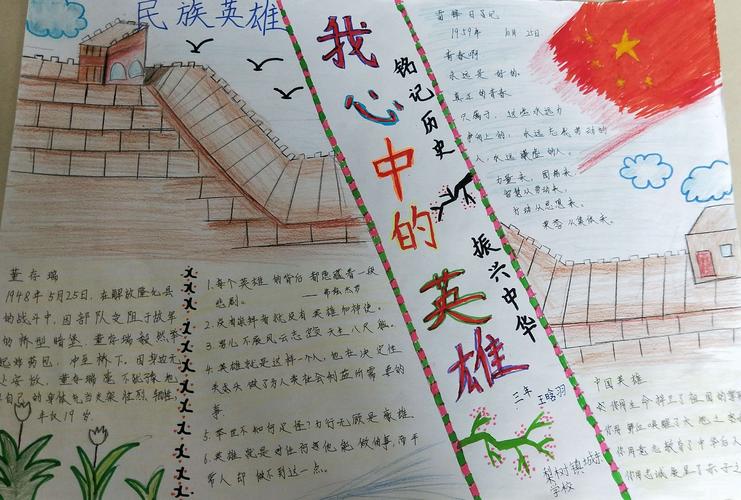 民族英雄
我心中的英雄
铭记历史
振兴中华
三年 王晗羽
梨树镇城东
学校
雷锋日记
1959年 10月25日
青春啊
永远是好的,
真正的青春
只属于,这些永远力
争向上的,永远忘我劳动的
人,永远谦虚的人。
力量从,团结来,
智慧从劳动来,
行动从思想来,
荣誉从集体来。
董存瑞
1948年5月25日,在解放隆化县
的战斗中,因部队受阻于敌军
的桥型暗堡,董存瑞毅然举
起炸药包,冲至桥下,因身边无
处安放,董存瑞毫不犹豫地
自己的身体充当支架壮烈牺牲,
年仅19岁
1.每个英雄的背后都隐藏着一段
悲剧。
2.没有崇拜者就没有英雄和神使。
3.男儿不展风云志空负天生八尺躯。
4.英雄就是这样一个人,他在决定性
关头做了为人类社会利益所需要的
事
5.举世不如何足怪?力行无顾是豪雄。
6.英雄就是对任何事他能做的事,而平
常人却做不到这一点。
中国英雄
你用生命捍卫了祖国的尊
你用鲜血唤醒了大地之
你用意志教育了中华后人
你用忠诚展呈了赤子之